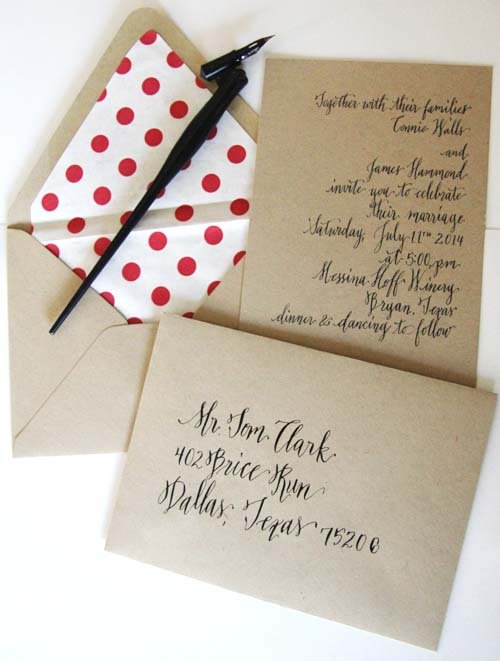 Together with their families
Connie Walls
and
James Hammond
invite you to celebrate
their marriage
Saturday, July 11TH 2014
at 5:00 pm
Messina Hoff Winery
Bryan, Texas
dinner & dancing to follow
Mr. Tom Clark
402 Brice Run
Dallas, Texas 75206